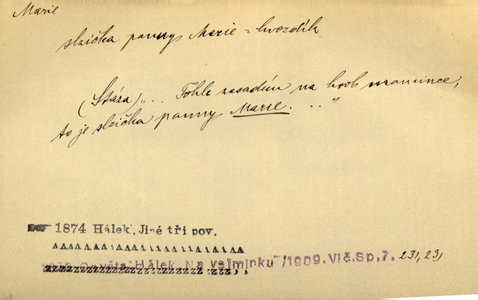 Marie
slzička panny Marie = hvozdík
(Stáza) „... Tohle zasadím na hrob mamince,
to je slzička panny Marie. ..."
1874 Hálek, Jiné tři pov.
Hálek, Na vejminku /1909. Vlč.Sp.7. 231,23,